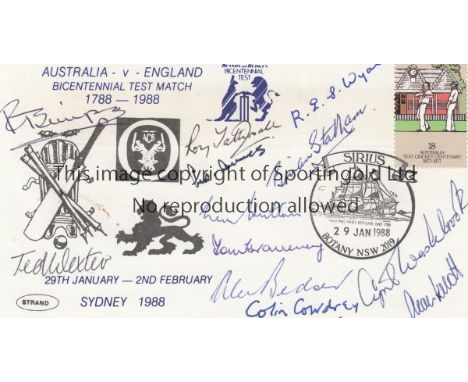 AUSTRALIA - v - ENGLAND
BICENTENNIAL TEST MATCH
1788 — 1988
BICENTENNIAL
TEST
R.E.S. Wyatt
Roy Tattersall
Brian Statham
18
AUSTRALIA
TEST CRICKET CENTENARY
1877-1977
This image copyright of Sportingold Ltd
No reproduction allowed
SIRIUS
29 JAN 1988
BOTANY NSW 2019
Len Hutton
Tom Graveney
Ted Dexter
Cyril Washbrook
Alec Bedser
Colin Cowdrey
Alan Knott
29TH JANUARY — 2ND FEBRUARY
STRAND
SYDNEY 1988